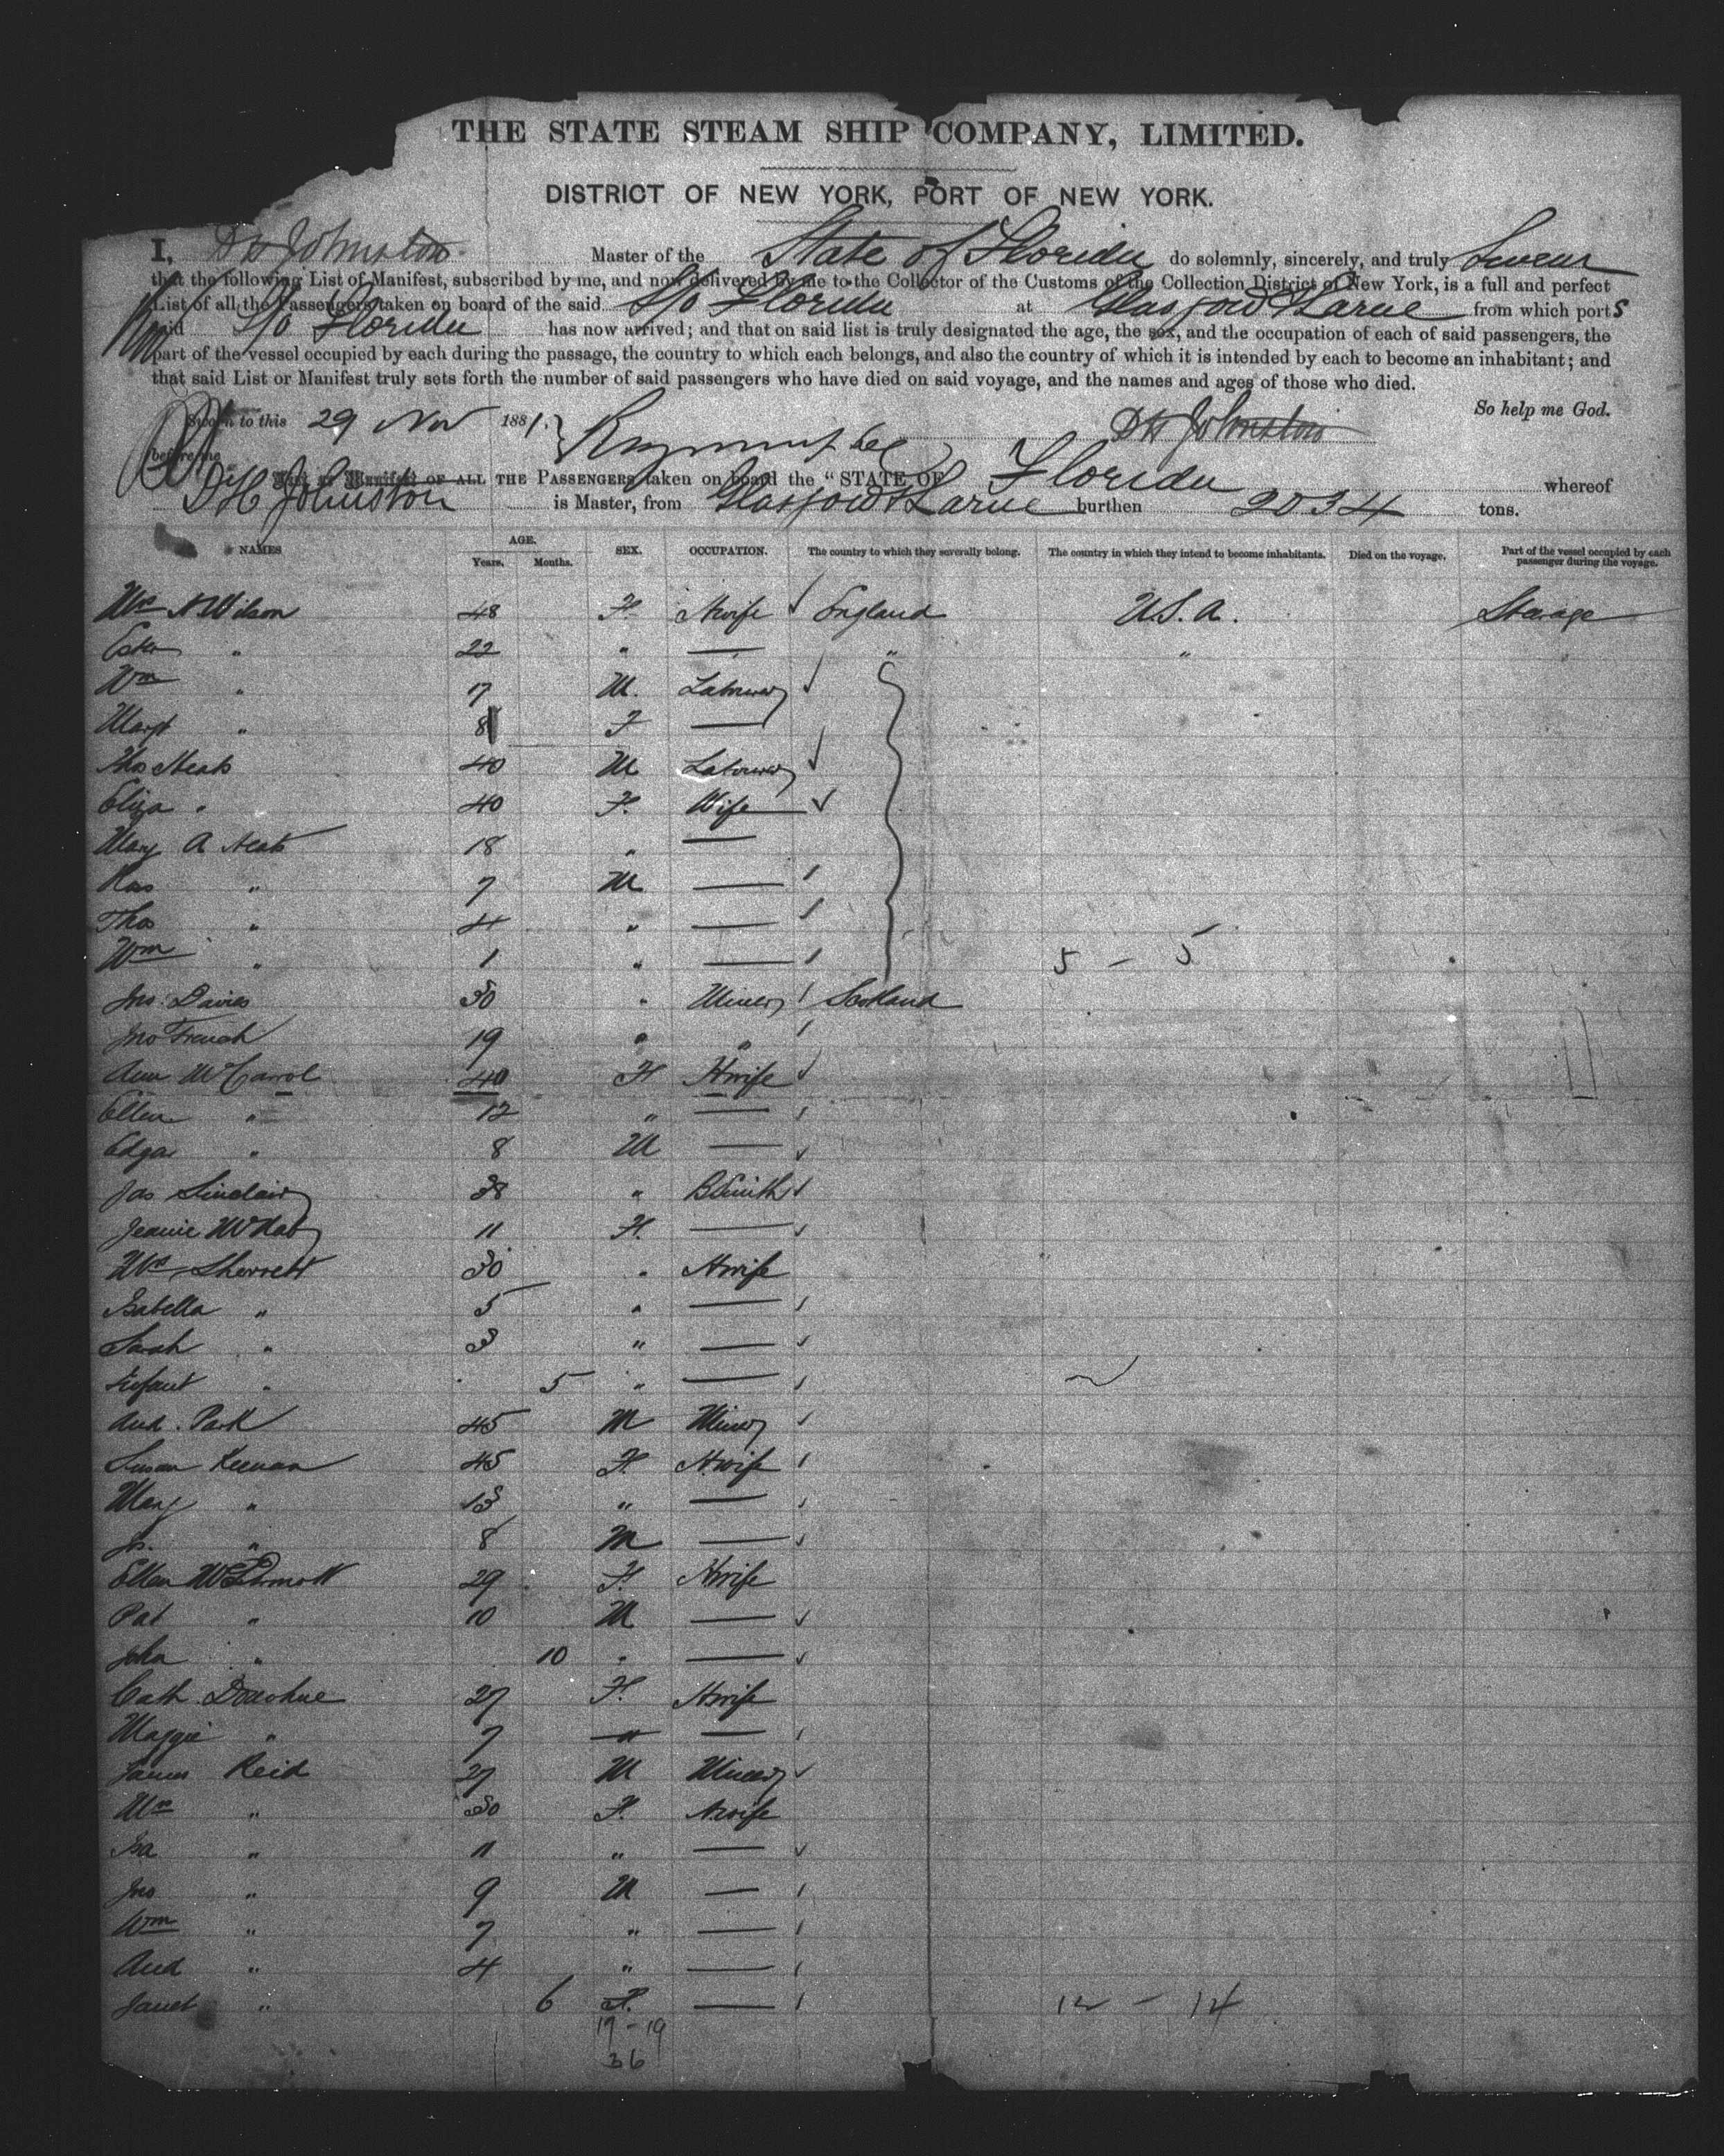 THE STATE STEAM SHIP COMPANY, LIMITED.
DISTRICT OF NEW YORK, PORT OF NEW YORK.
I, D H Johnston Master of the State of Florida do solemnly, sincerely, and truly Swear
that the following List of Manifest, subscribed by me, and now delivered by me to the Collector of the Customs of the Collection District of New York, is a full and perfect
List of all the Passengers taken on board of the said S/o Florida at Glasgow & Larne from which ports
said S/o Florida has now arrived; and that on said list is truly designated the age, the sex, and the occupation of each of said passengers, the
part of the vessel occupied by each during the passage, the country to which each belongs, and also the country of which it is intended by each to become an inhabitant; and
that said List or Manifest truly sets forth the number of said passengers who have died on said voyage, and the names and ages of those who died.
So help me God.
Sworn to this 29 Nov 1881. D H Johnston
before me
List or Manifest OF ALL THE PASSENGERS taken on board the "STATE OF Florida whereof
D H Johnston is Master, from Glasgow & Larne burthen 2034 tons.
NAMES AGE. Years. Months. SEX. OCCUPATION. The country to which they severally belong. The country in which they intend to become inhabitants. Died on the voyage. Part of the vessel occupied by each passenger during the voyage.
Mrs N Wilson 48 F. Hwife England U.S.A. Steerage
Ester " 22 " — " "
Wm " 17 M. Labourer
Margt " 8 F —
Thos Neats 40 M Labourer
Eliza " 40 F. Wife
Mary A Neats 18 " —
" 7 M —
Thos " 4 " —
Wm " 1 " — 5 - 5
Jno. Davies 30 " Miner Scotland
Jno French 19 " "
Ann McCarrol 40 F Hwife
Ellen " 12 " —
Edgar " 8 M —
Jas Sinclair 38 " BSmith
Jeanie McNab 11 F. —
Mrs Sherrett 30 " Hwife
Isabella " 5 " —
Sarah " 3 " —
Infant " 5 " —
And. Park 45 M Miner
Susan Keenan 45 F. Hwife
Mary " 13 " —
Js. " 8 M —
Ellen McDermott 29 F. Hwife
Pat " 10 M —
John " 10 " —
Cath. Donohue 27 F. Hwife
Maggie " 7 " —
James Reid 27 M Miner
Mrs " 30 F. Hwife
Isa " 11 " —
Jno " 9 M —
Wm " 7 " —
And " 4 " —
Janet " 6 F. — 12 - 14
17 - 19
36